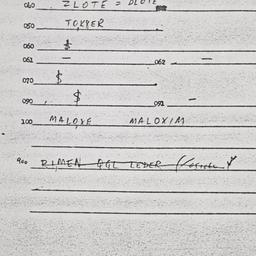 040 ZLOTE = DLOTE
050 TOKPER
060 $
061 — 062 —
070 $
090 $ 091 —
100 MALOXE MALOXIM
900 RIMEN GGL LEDER